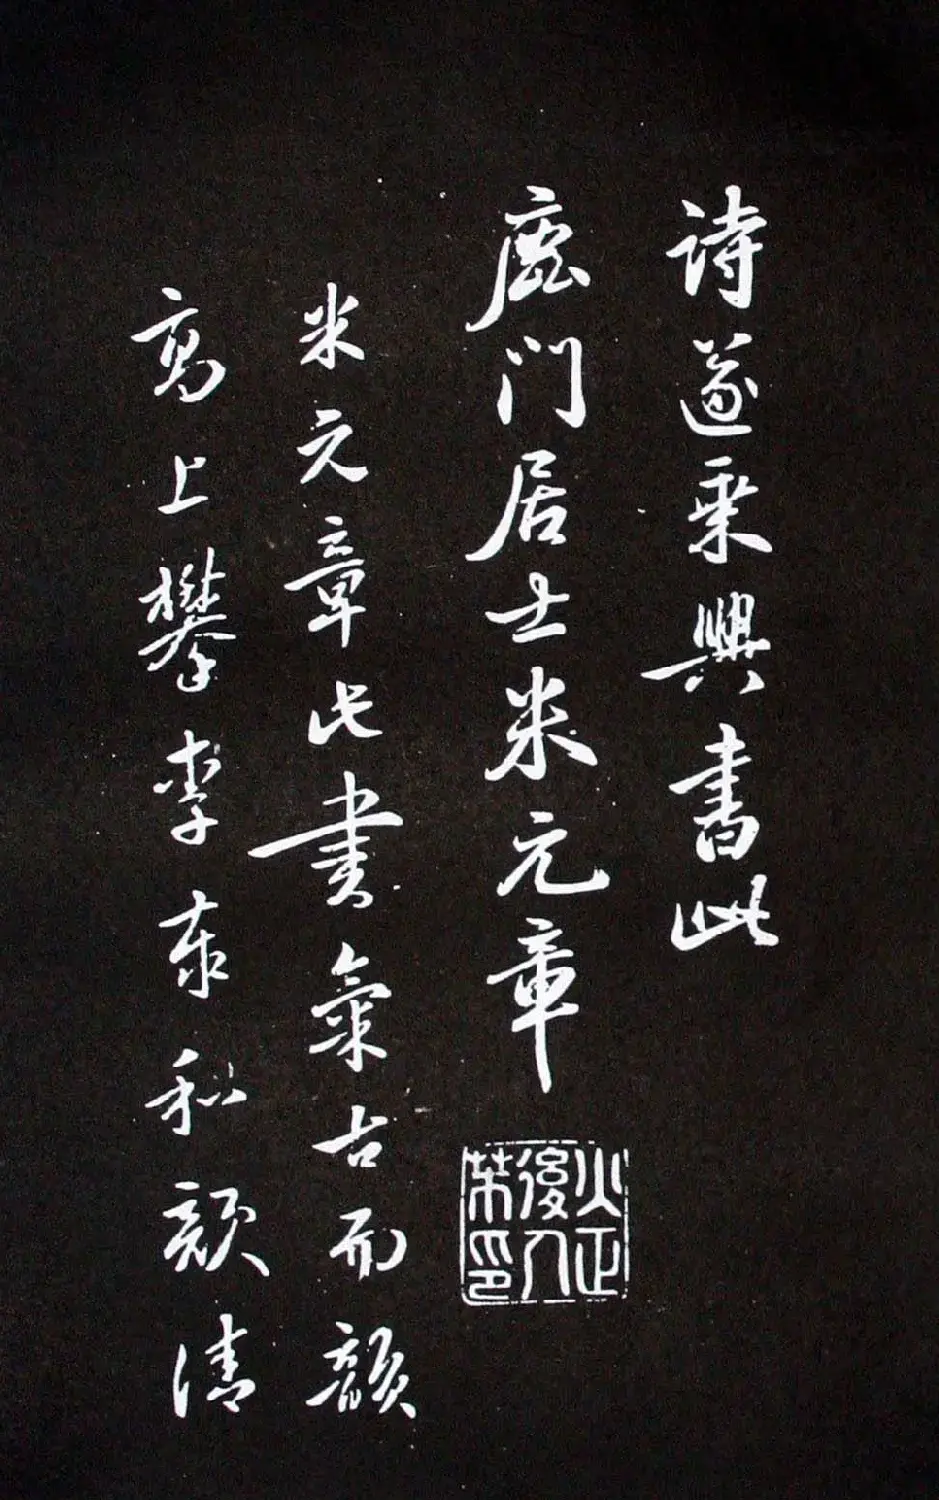 詩遂乘興書此
鹿門居士米元章
火正後人芾印
米元章此書氣古而韻
高上攀李泰和顏清